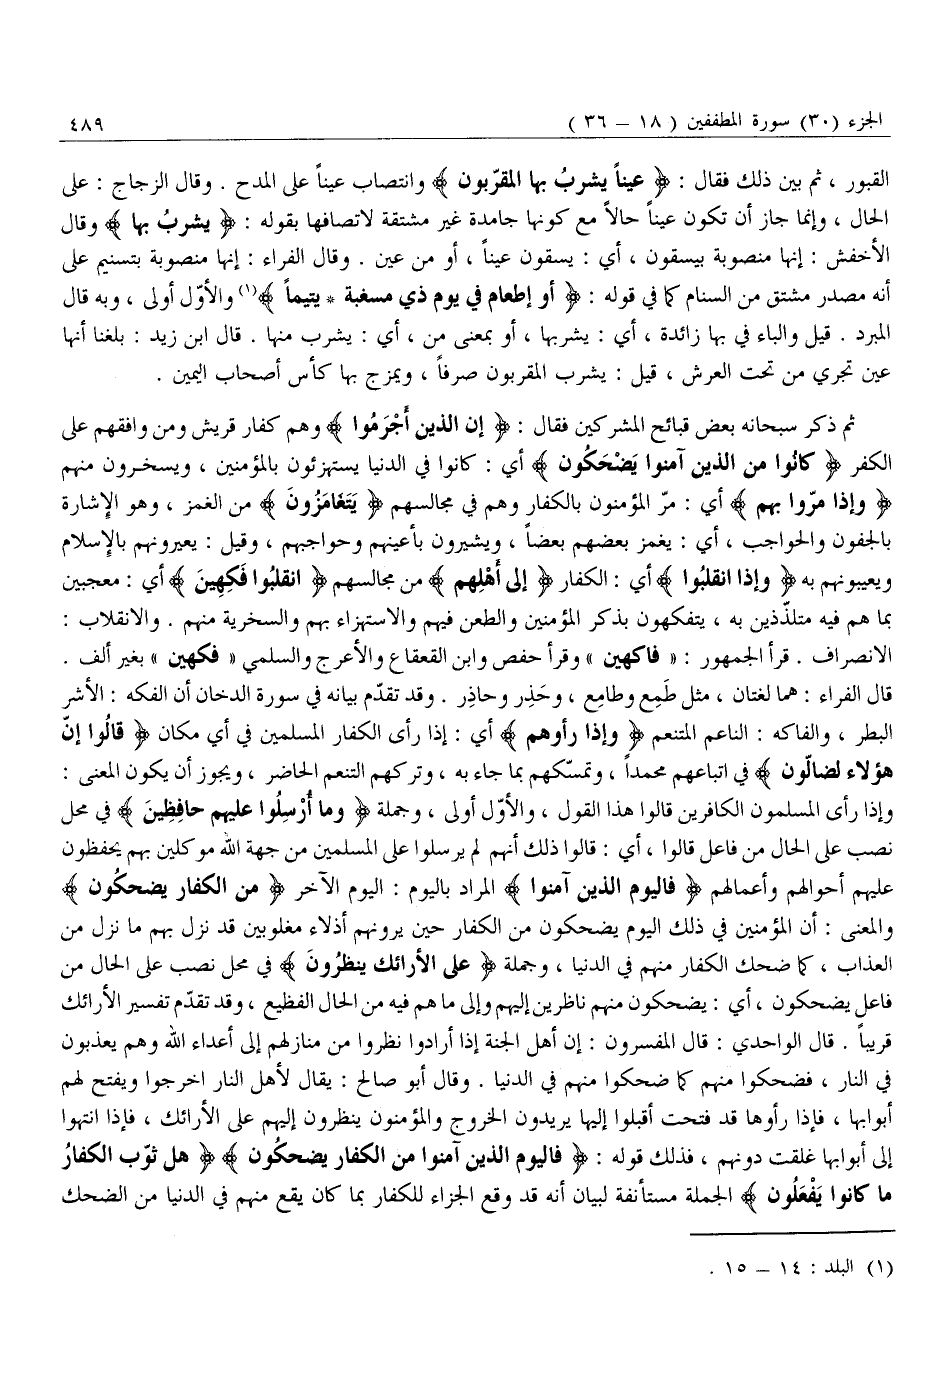 الجزء (٣٠) سورة المطففين ( ١٨ – ٣٦ ) ٤٨٩
القبور ، ثم بين ذلك فقال : ﴿ عيناً يشربُ بها المقرّبون ﴾ وانتصاب عيناً على المدح . وقال الزجاج : على
الحال ، وإنما جاز أن تكون عيناً حالاً مع كونها جامدة غير مشتقة لاتصافها بقوله : ﴿ يشربُ بها ﴾ وقال
الأخفش : إنها منصوبة بيسقون ، أي : يسقون عيناً ، أو من عين . وقال الفراء : إنها منصوبة بتسنيم على
أنه مصدر مشتق من السنام كما في قوله : ﴿ أو إطعام في يوم ذي مسغبة * يتيماً ﴾(١) والأوّل أولى ، وبه قال
المبرد . قيل والباء في بها زائدة ، أي : يشربها ، أو بمعنى من ، أي : يشرب منها . قال ابن زيد : بلغنا أنها
عين تجري من تحت العرش ، قيل : يشرب المقربون صرفاً ، ويمزج بها كأس أصحاب اليمين .
ثم ذكر سبحانه بعض قبائح المشركين فقال : ﴿ إن الذين أَجْرَمُوا ﴾ وهم كفار قريش ومن وافقهم على
الكفر ﴿ كانُوا من الذين آمنوا يَضْحَكُون ﴾ أي : كانوا في الدنيا يستهزئون بالمؤمنين ، ويسخرون منهم
﴿ وإذا مرّوا بهم ﴾ أي : مرّ المؤمنون بالكفار وهم في مجالسهم ﴿ يَتَغَامَزُونَ ﴾ من الغمز ، وهو الإشارة
بالجفون والحواجب ، أي : يغمز بعضهم بعضاً ، ويشيرون بأعينهم وحواجبهم ، وقيل : يعيرونهم بالإسلام
ويعيبونهم به ﴿ وإذا انقلبُوا ﴾ أي : الكفار ﴿ إلى أَهْلِهم ﴾ من مجالسهم ﴿ انقلبُوا فَكِهينَ ﴾ أي : معجبين
بما هم فيه متلذّذين به ، يتفكهون بذكر المؤمنين والطعن فيهم والاستهزاء بهم والسخرية منهم . والانقلاب :
الانصراف . قرأ الجمهور : « فاكهين » وقرأ حفص وابن القعقاع والأعرج والسلمي « فكهين » بغير ألف .
قال الفراء : هما لغتان ، مثل طَمِع وطامِع ، وحَذِر وحاذِر . وقد تقدّم بيانه في سورة الدخان أن الفكه : الأشر
البطر ، والفاكه : الناعم المتنعم ﴿ وإذا رأوهم ﴾ أي : إذا رأى الكفار المسلمين في أي مكان ﴿ قالُوا إنّ
هؤلاء لضالّون ﴾ في اتباعهم محمداً ، وتمسّكهم بما جاء به ، وتركهم التنعم الحاضر ، ويجوز أن يكون المعنى :
وإذا رأى المسلمون الكافرين قالوا هذا القول ، والأوّل أولى ، وجملة ﴿ وما أُرْسِلُوا عليهم حافِظِينَ ﴾ في محل
نصب على الحال من فاعل قالوا ، أي : قالوا ذلك أنهم لم يرسلوا على المسلمين من جهة الله موكلين بهم يحفظون
عليهم أحوالهم وأعمالهم ﴿ فاليوم الذين آمنوا ﴾ المراد باليوم : اليوم الآخر ﴿ من الكفار يضحكُون ﴾
والمعنى : أن المؤمنين في ذلك اليوم يضحكون من الكفار حين يرونهم أذلاء مغلوبين قد نزل بهم ما نزل من
العذاب ، كما ضحك الكفار منهم في الدنيا ، وجملة ﴿ على الأرائك ينظرُونَ ﴾ في محل نصب على الحال من
فاعل يضحكون ، أي : يضحكون منهم ناظرين إليهم وإلى ما هم فيه من الحال الفظيع ، وقد تقدّم تفسير الأرائك
قريباً . قال الواحدي : قال المفسرون : إن أهل الجنة إذا أرادوا نظروا من منازلهم إلى أعداء الله وهم يعذبون
في النار ، فضحكوا منهم كما ضحكوا منهم في الدنيا . وقال أبو صالح : يقال لأهل النار اخرجوا ويفتح لهم
أبوابها ، فإذا رأوها قد فتحت أقبلوا إليها يريدون الخروج والمؤمنون ينظرون إليهم على الأرائك ، فإذا انتهوا
إلى أبوابها غلقت دونهم ، فذلك قوله : ﴿ فاليوم الذين آمنوا من الكفار يضحكُون ﴾ ﴿ هل ثوّب الكفارُ
ما كانوا يَفْعَلُون ﴾ الجملة مستأنفة لبيان أنه قد وقع الجزاء للكفار بما كان يقع منهم في الدنيا من الضحك
(١) البلد : ١٤ – ١٥ .